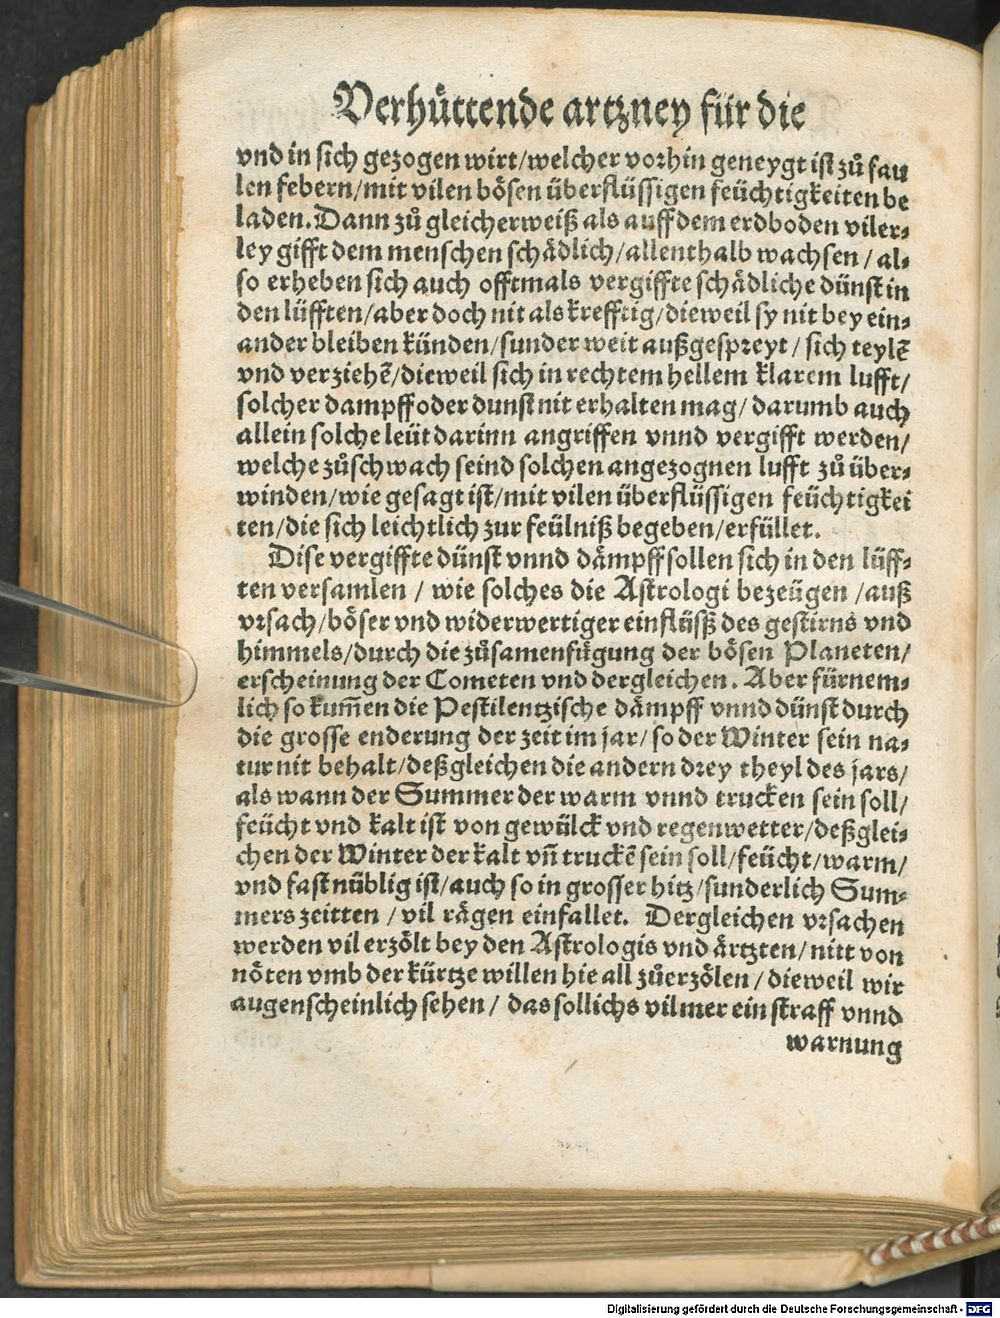 Verhuͤttende artzney fuͤr die
vnd in sich gezogen wirt/welcher vorhin geneygt ist zuͦ fau
len febern/mit vilen boͤsen uͤberfluͤssigen feuͤchtigkeiten be
laden. Dann zuͦ gleicherweiß als auff dem erdboden viler⸗
ley gifft dem menschen schaͤdlich/allenthalb wachsen / al⸗
so erheben sich auch offtmals vergiffte schaͤdliche duͤnst in
den luͤfften/aber doch nit als krefftig/dieweil sy nit bey ein⸗
ander bleiben kuͤnden/sunder weit außgespreyt / sich teylẽ
vnd verziehẽ/dieweil sich in rechtem hellem klarem lufft/
solcher dampff oder dunst nit erhalten mag/ darumb auch
allein solche leuͤt darinn angriffen vnnd vergifft werden/
welche zuͦ schwach seind solchen angezognen lufft zuͦ uͤber⸗
winden/wie gesagt ist/mit vilen uͤberfluͤssigen feuͤchtigkei
ten/die sich leichtlich zur feuͤlniß begeben/erfuͤllet.
Dise vergiffte duͤnst vnnd daͤmpff sollen sich in den luͤff⸗
ten versamlen / wie solches die Astrologi bezeuͤgen /auß
vrsach/boͤser vnd widerwertiger einfluͤsß des gestirns vnd
himmels/durch die zuͦsamenfuͤgung der boͤsen Planeten/
erscheinung der Cometen vnd dergleichen. Aber fuͤrnem⸗
lich so kum̃en die Pestilentzische daͤmpff vnnd duͤnst durch
die grosse enderung der zeit im jar/ so der Winter sein na⸗
tur nit behalt/deßgleichen die andern drey theyl des jars/
als wann der Summer der warm vnnd trucken sein soll/
feuͤcht vnd kalt ist von gewuͤlck vnd regenwetter/deßglei⸗
chen der Winter der kalt vñ truckẽ sein soll/feuͤcht/warm/
vnd fast nuͤblig ist/auch so in grosser hitz/sunderlich Sum⸗
mers zeitten / vil raͤgen einfallet. Dergleichen vrsachen
werden vil erzoͤlt bey den Astrologis vnd aͤrtzten/ nitt von
noͤten vmb der kuͤrtze willen hie all zuͦ erzoͤlen / dieweil wir
augenscheinlich sehen / das sollichs vil mer ein straff vnnd
warnung
Digitalisierung gefördert durch die Deutsche Forschungsgemeinschaft - DFG